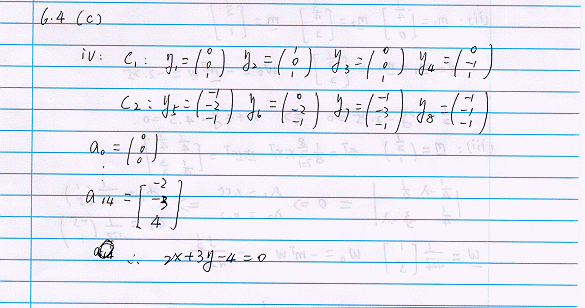 6.4 (c)
iv: C₁: y₁ = (0 0 1) y₂ = (1 0 1) y₃ = (0 0 1) y₄ = (0 -1 1)
C₂: y₅ = (-1 -2 -1) y₆ = (0 -2 -1) y₇ = (-1 -3 -1) y₈ = (-1 -1 -1)
a₀ = (0 0 0)
⋮
a₁₄ = [-2 -3 4]
∴ 2x+3y-4=0